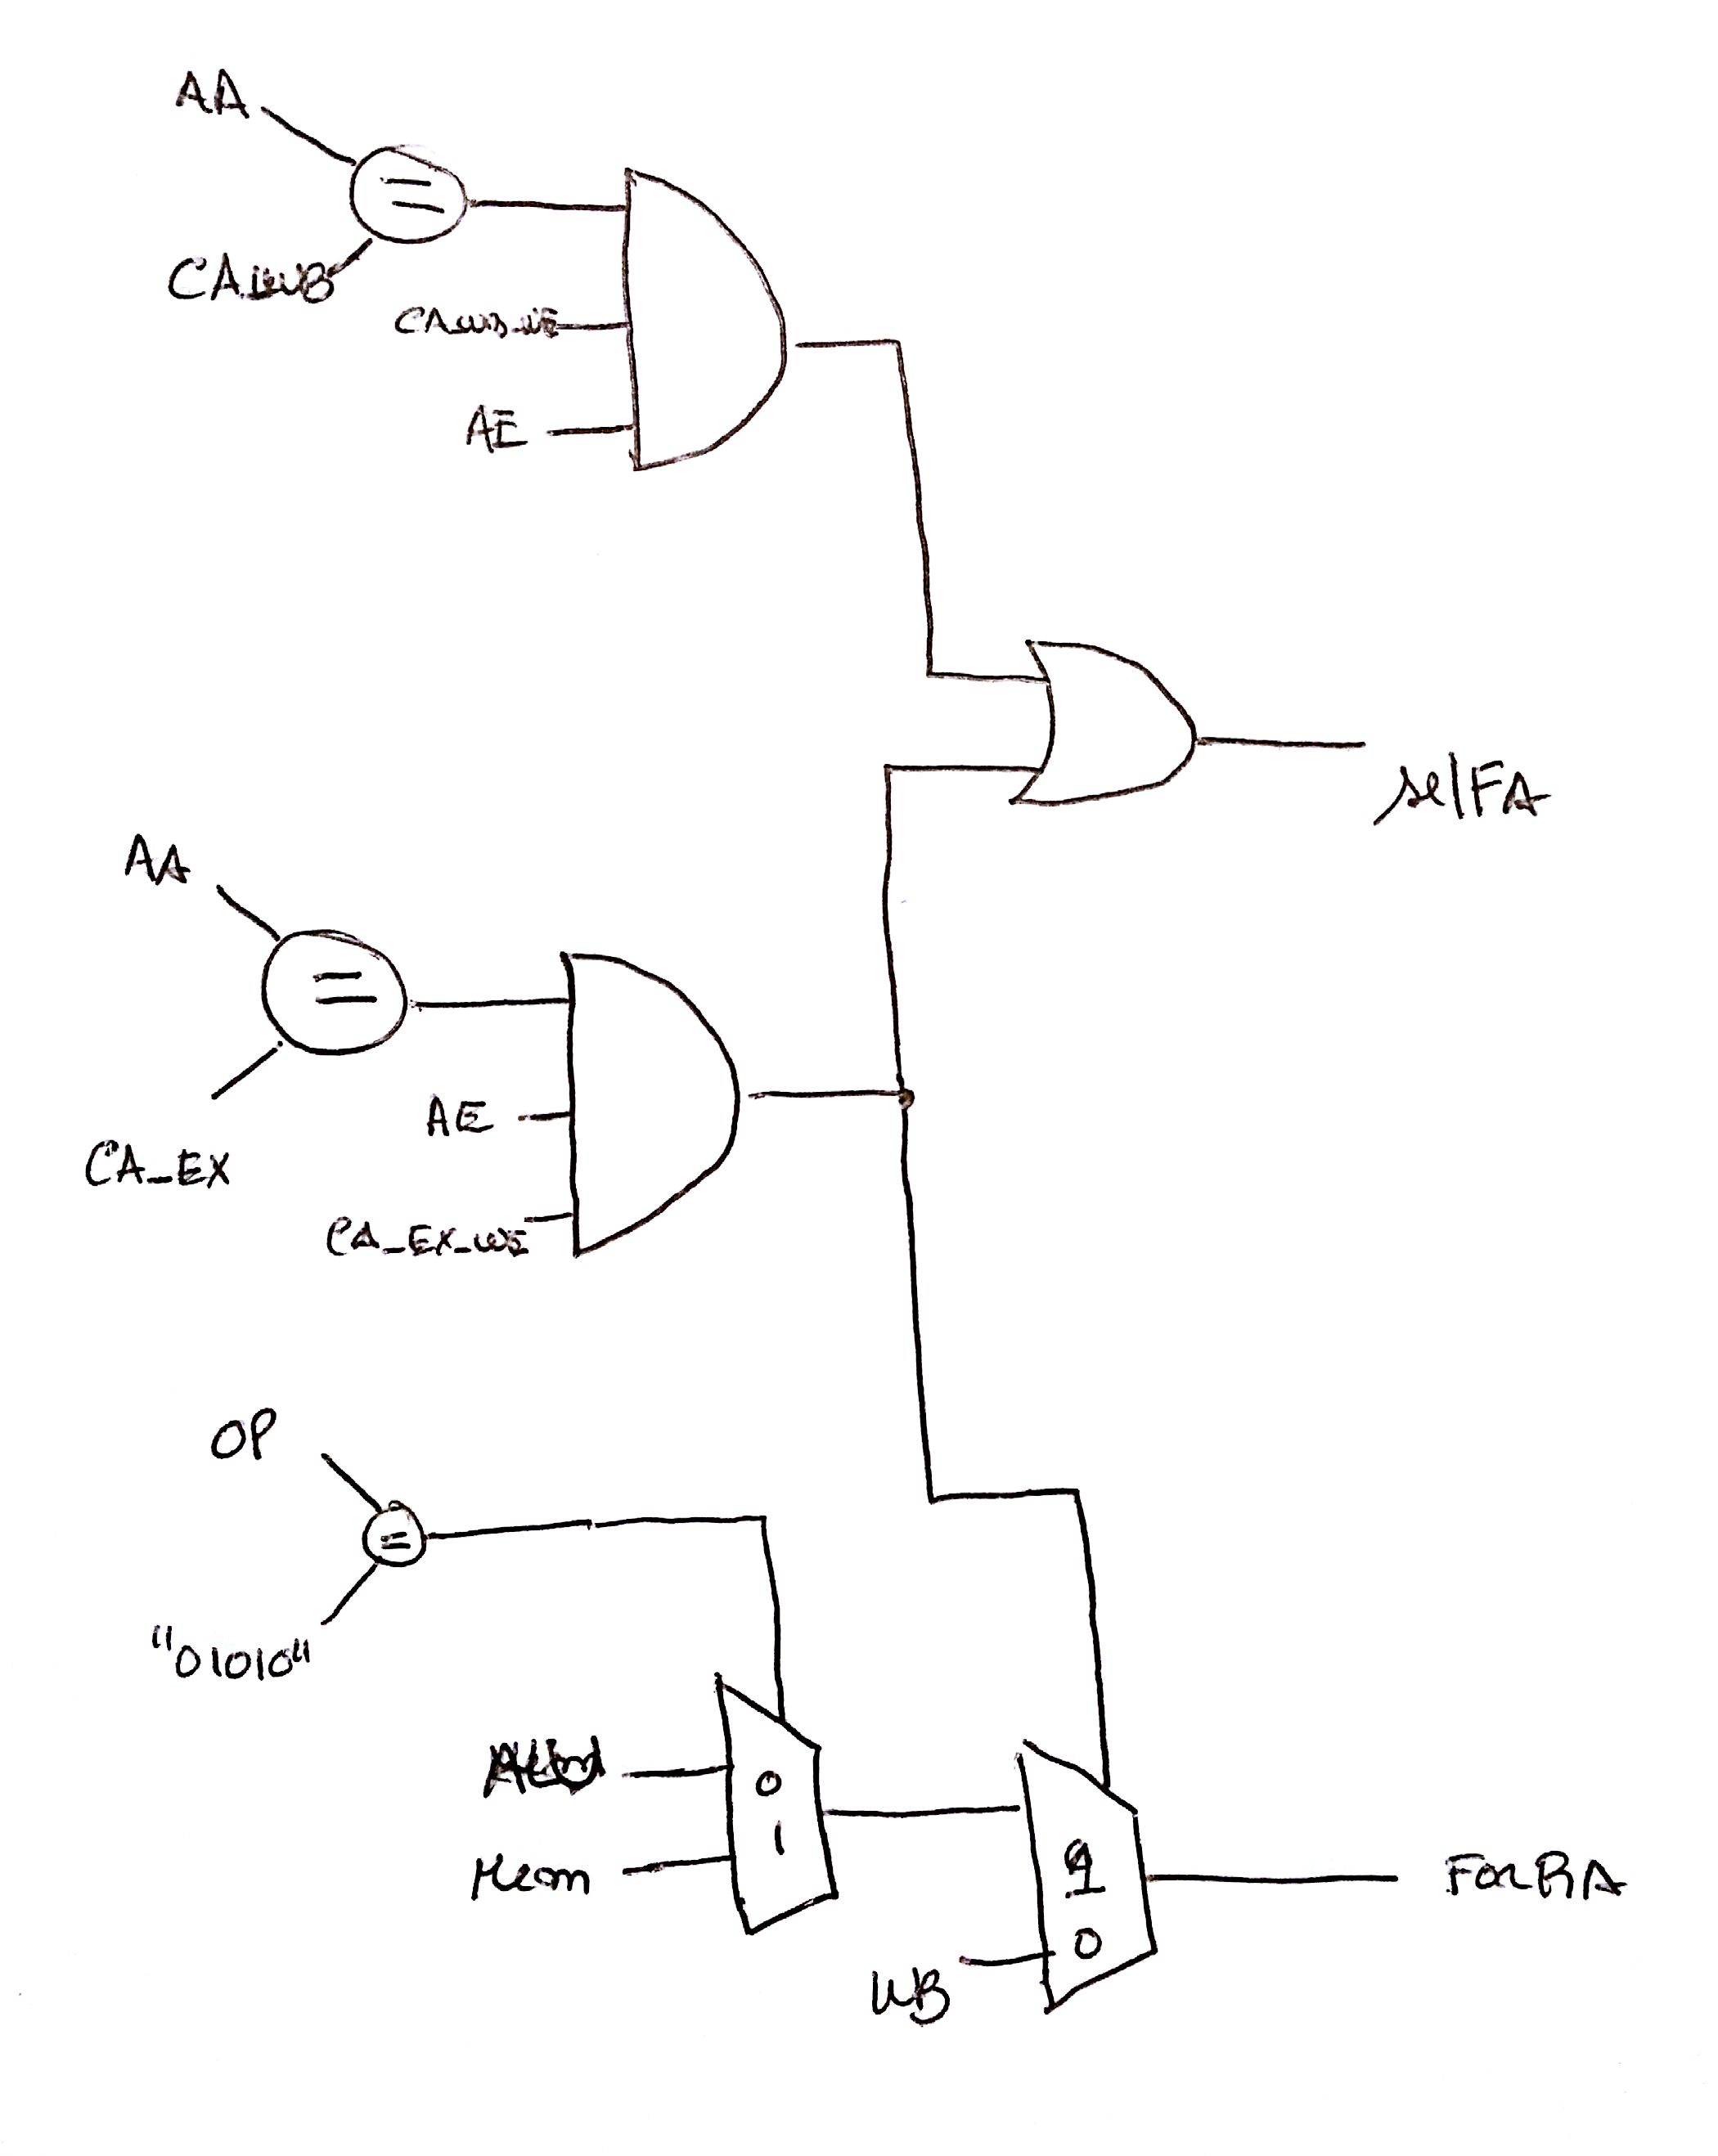 AA
=
CA_WB
CA_WB_WE
AE
selFA
AA
=
CA_EX
AE
CA_EX_WE
OP
=
"01010"
0
1
Mem
1
0
WB
ForRA